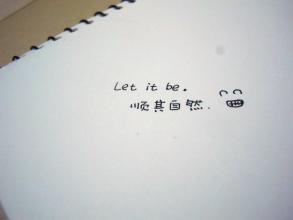 Let it be.
顺其自然.